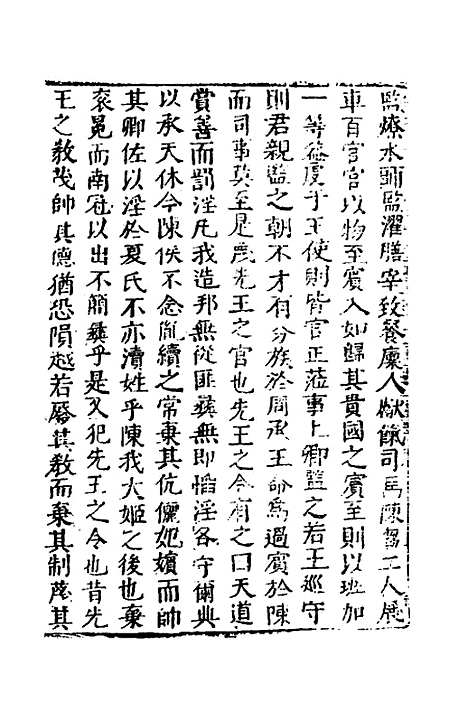 監燎水師監濯膳宰致餐廩人獻餼司馬陳芻工人展
車百官官以物至賓入如歸其貴國之賓至則以班加
一等益虔于王使則皆官正蒞事上卿監之若王巡守
則君親監之朝不才有分族於周承王命爲過賓於陳
而司事莫至是蔑先王之官也先王之令有之曰天道
賞善而罰淫凡我造邦無從匪彝無即慆淫各守爾典
以承天休今陳侯不念胤續之常棄其伉儷妃嬪而帥
其卿佐以淫於夏氏不亦瀆姓乎陳我大姬之後也棄
衮冕而南冠以出不簡彝乎是又犯先王之令也昔先
王之教茂帥其德猶恐隕越若廢其教而棄其制蔑其